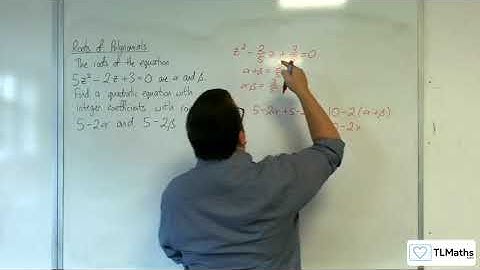 Roots of Polynomials
The roots of the equation
5z² - 2z + 3 = 0 are α and β.
Find a quadratic equation with
integer coefficients with
5 - 2α and 5 - 2β
z² - 2/5 z + 3/5 = 0
α + β =
αβ =
5 - 2α + 5 - 10 - 2(α + β)
TLMaths